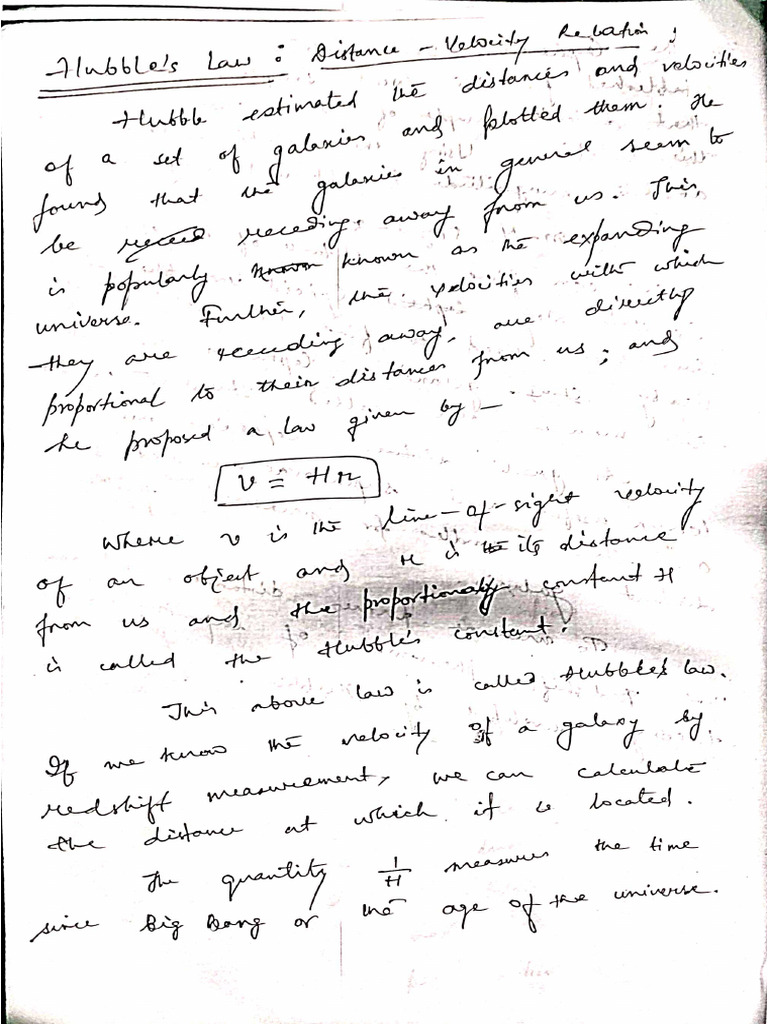 Hubble's Law : Distance - Velocity Relation :
Hubble estimated the distances and velocities
of a set of galaxies and plotted them. He
found that the galaxies in general seem to
be receding away from us. This
is popularly known as the expanding
universe. Further, the velocities with which
they are receeding away, are directly
proportional to their distances from us ; and
he proposed a law given by —
v = Hr
Where v is the line-of-sight velocity
of an object and r is its distance
from us and the proportionality constant H
is called the Hubble's constant.
This above law is called Hubble's law.
If we know the velocity of a galaxy by
redshift measurement, we can calculate
the distance at which it is located.
The quantity 1/H measures the time
since Big Bang or the age of the universe.